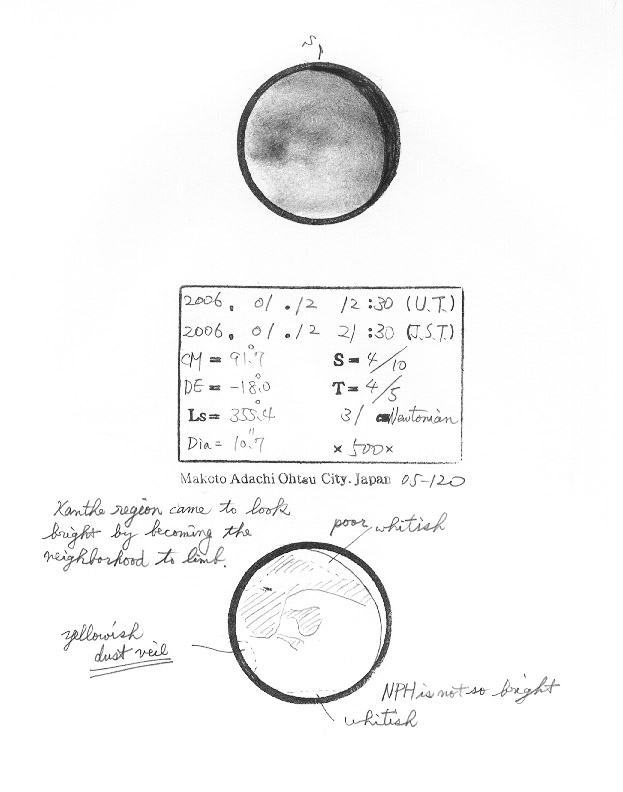 S
2006. 01.12 12:30 (U.T.)
2006. 01.12 21:30 (J.S.T)
CM = 91.°7 S = 4/10
DE = -18.°0 T = 4/5
Ls = 355.°4 31 cm Newtonian
Dia = 10."7 × 500×
Makoto Adachi Ohtsu City. Japan 05-120
Xanthe region came to look
bright by becoming the
neighborhood to limb.
poor whitish
yellowish
dust veil
NPH is not so bright
whitish